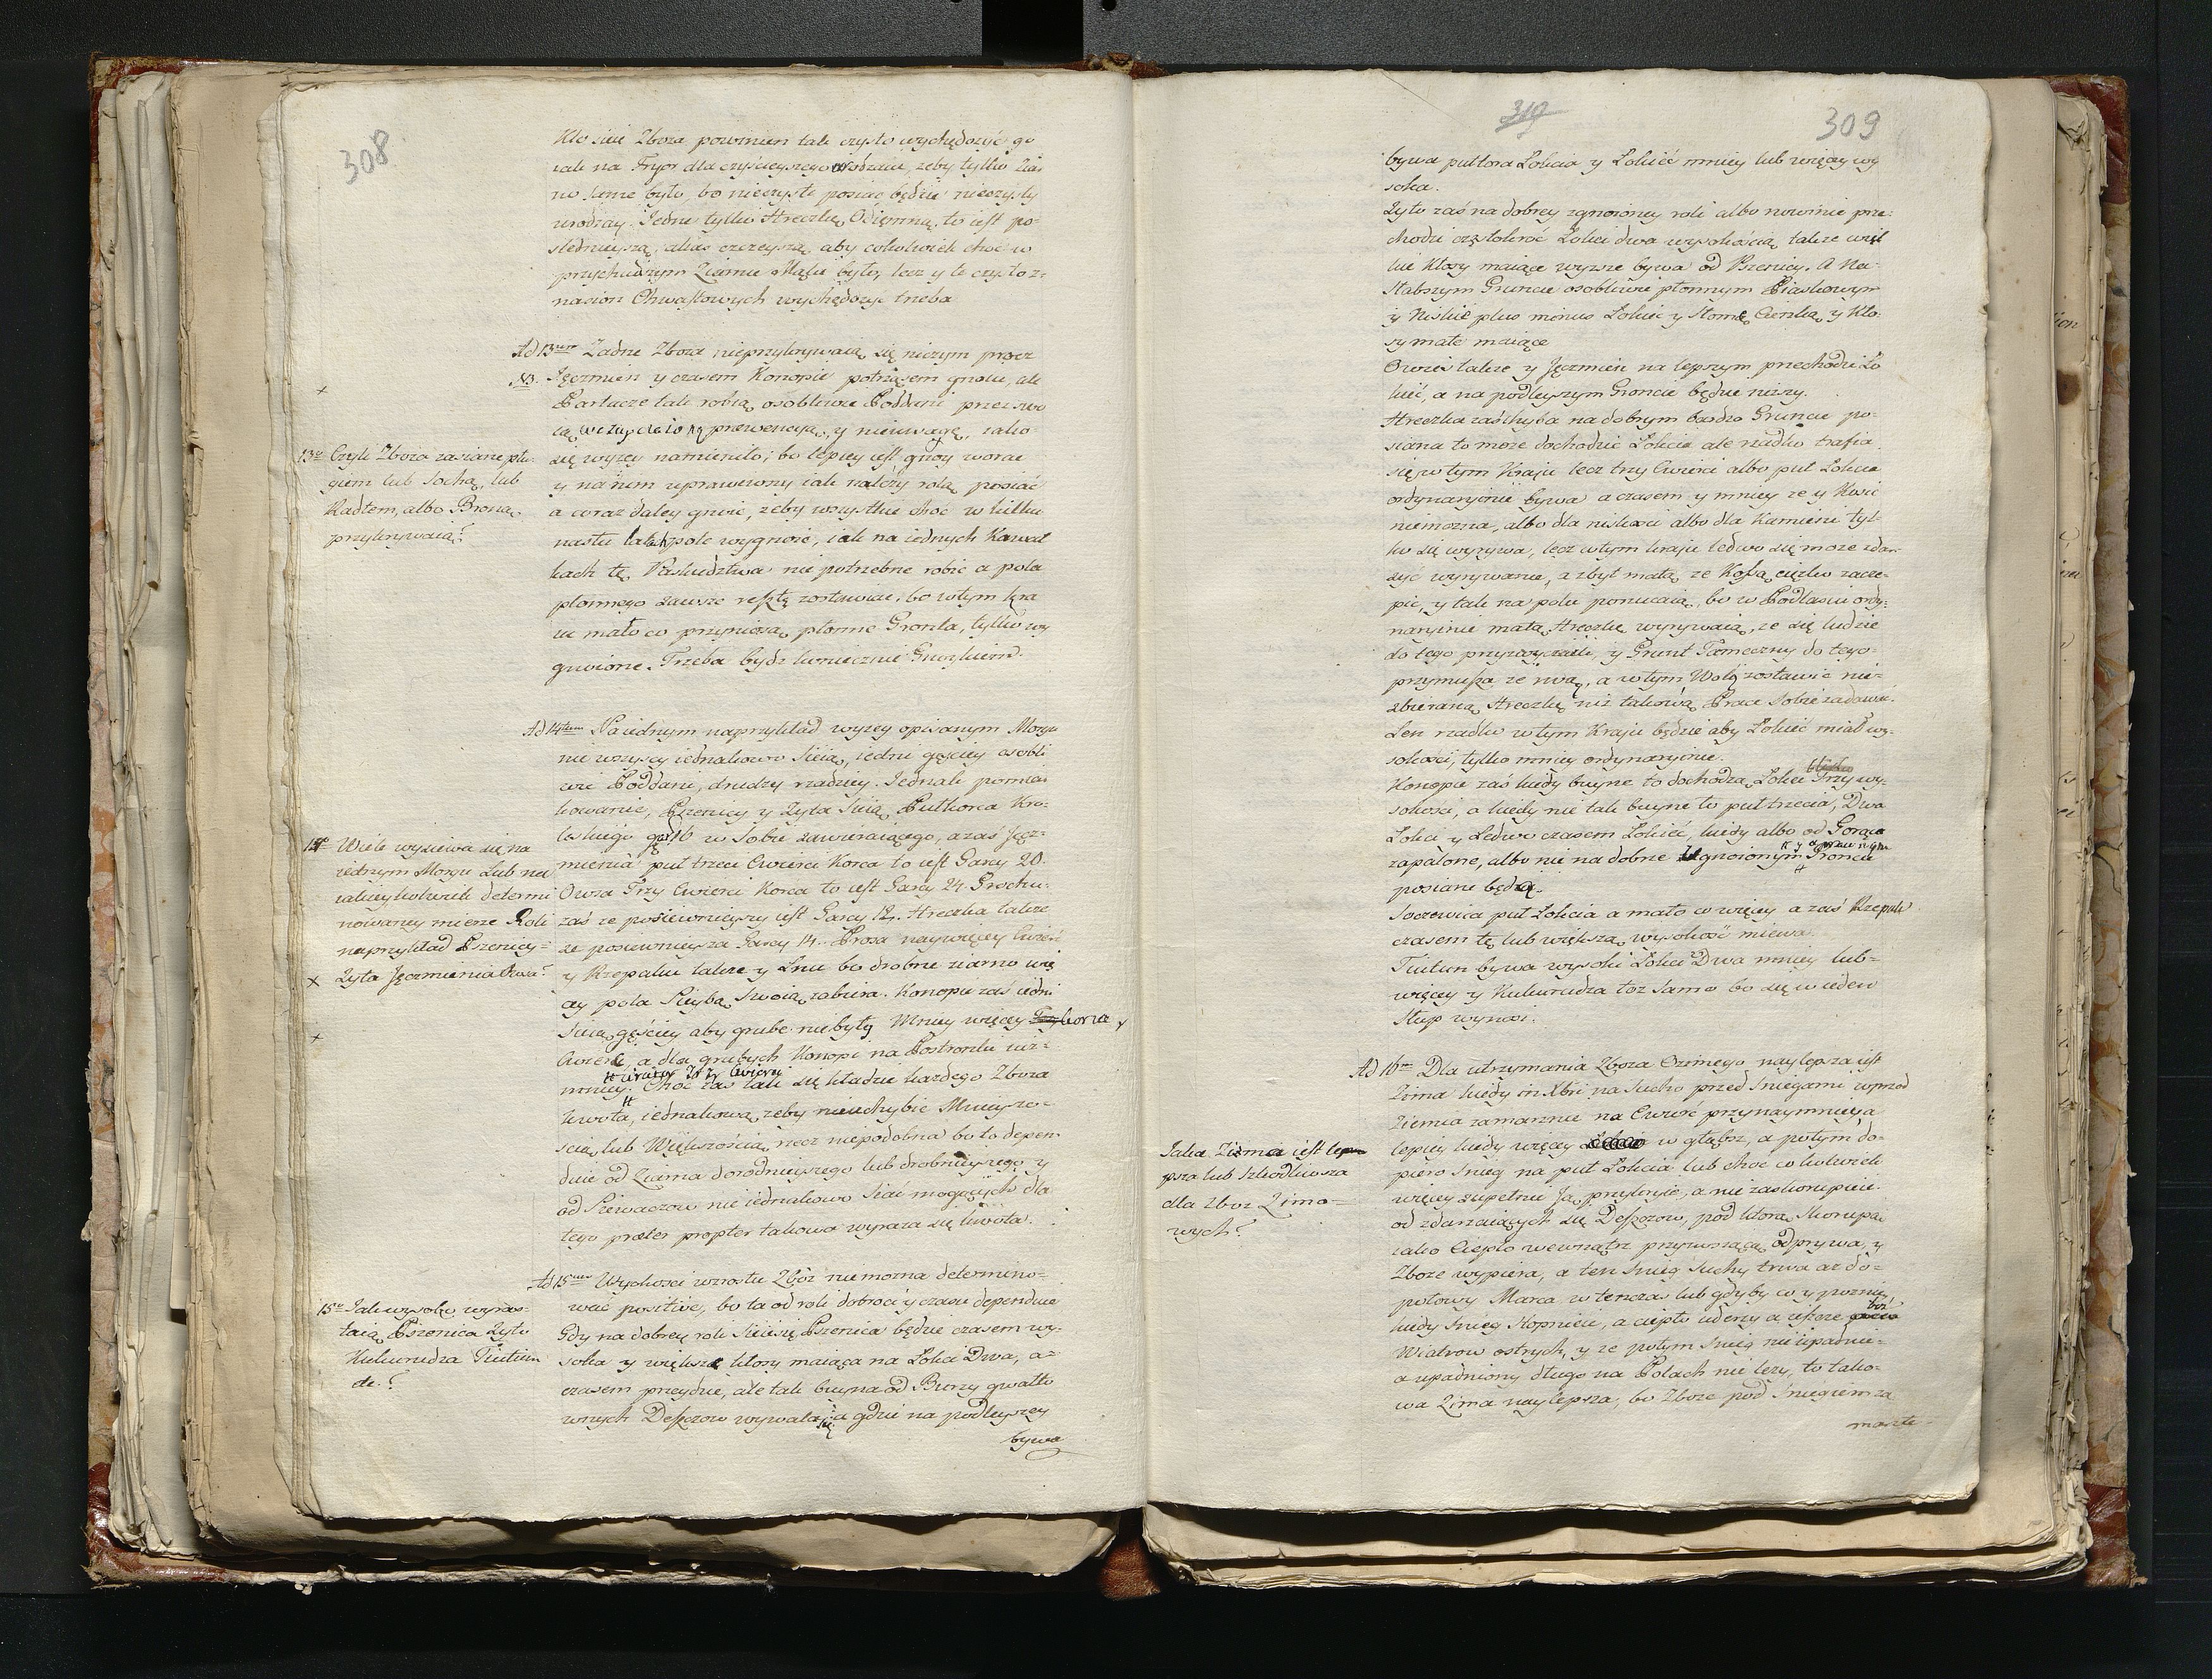 308
Kto sieie Zboza powinien tak czysto wychędożyć go
iak na Fryor dla czyścieyszego urodzaiu, zeby tylko Ziar
no same było, bo nieczysto posiac będzie nieczysty
urodzay. Jedne tylko Hreczkę Osienną, to iest po=
sledniejszą, alias czczeyszą, aby cokolwiek choć w
przychudszym Ziarnie Mąki było, lecz y te czysto z=
nasion Chwastowych wychędozyc trzeba
Ad 13um Zadne Zboza nieprzykrywaią się niczym procz
NB. Jęczmien y czasem Konopie potrząsem gnoiu, ale
Partacze tak robią osobliwie Poddani przez swo
ią prewencyą, y nieuwagę, iako
się wyzey namieniło; bo lepiey iest gnoy worac
y na nim uprawiwszy iak nalezy rolą posiać
a coraz daley gnoić, zeby wszystkie choć w kilku
nastu latach pole wygnoić, iak na iednych Kawał
kach tę Paskudztwa nie potrzebne robić a pola
płonnego zawsze resztę zostawiac, bo w tym kra
iu mało co przyniosą płonne Gronta, tylko wy
gnoione. Trzeba bydz koniecznie Gnoykiem.
13o Czyli Zboza zasiane płu=
giem lub Sochą, lub
Radłem, albo Broną
przykrywaią?
Ad 14tum Na iednym naprzykład wyzey opisanym Morgu
nie wszyscy iednakowo Sieią, iedni gęściey osobli
wie Poddani, drudzy rzadziey. Jednak pomiar
kowanie, Pszenicy y Zyta Sieią Pułkorca Kra=
kowskiego gar 16 w Sobie zawieraiącego, a zaś Jęcz=
mienia puł trzeci Cwierci Korca to iest Garcy 20.
Owsa Trzy Cwierci Korca to iest Garcy 24. Grochu=
zaś ze posiewnieyszy iest Garcy 12. Hreczka takze
ze posiewnieysza Garcy 14. Prosa naywięcey Cwierć
y Rzepaku takze y Lnu bo drobne ziarno wię
cy pola Sieybą Swoią zabiera. Konopie zaś iedni
Sieią gęściey aby grube niebyły Mniey więcey Korca y
Cwierć, a dla grubych Konopi na Postronki iuz=
mniey. Choć zaś tak się kładzie kazdego Zboza
kwota, iednakową, zeby nieuchybic Mnieyszo=
scią, lub Większością, rzecz niepodobna bo to depen
duie od Ziarna dorodnieyszego lub drobnieyszego y
od Siewaczow nie iednakowo Siać mogących dla
tego præter propter takowa wyraza się kwota.
14o Wiele wysiewa się na
iednym Morgu Lub na
iakieykolwiek determi
nowaney mierze Roli
naprzykład Pszenicy=
Zyta Jęczmienia Owsa?
Ad 15um Wysokości wzrostu Zboz nie mozna determino=
wać positive, bo ta od roli dobroci y czasu dependuie
Gdy na dobrey roli Sieie się Pszenica będzie czasem wy=
soka y większe kłosy maiąca na Łokci Dwa, a=
czasem przeydzie, ale tak buyna od Burzy gwałto
wnych Deszczow wywala się a gdzie na podleyszey
bywa
15o Jak wysoko wyras=
taią Pszenica Zyto
Kukurudza Tiutiun
etc.?
309
bywa pułtora Łokcia y Łokieć mniey lub więcey wy
soka.
Zyto zaś na dobrey zgnoioney roli albo nowinie prze=
chodzi częstokroć Łokci dwa wysokością takze więk
kie kłosy maiące wyzsze bywa od Pszenicy. A Na=
słabszym Gruncie osobliwie płonnym Piaskowym
y Niskie plus minus Łokieć y słomę Cienką y Kło=
sy małe maiące
Owies takze y Jęczmień na lepszym przechodzi Ło
kieć, a na podleyszym Gróncie będzie nizszy.
Hreczka zaś chyba na dobrym bardzo Gruncie po=
siana to moze dochodzić Łokcia ale rzadko trafia
się w tym Kraju lecz trzy Cwierci albo puł Łokcia
ordynaryinie bywa a czasem y mniey ze y Kosić
niemozna, albo dla niskości albo dla Kamieni tyl=
ko się wyrywa, lecz w tym kraju ledwo się moze zdar=
zyć wyrywanie, a zbyt małą ze Kosą cięzko zacze=
pić, y tak na polu porzucaią, bo w Podlasiu ordy=
naryinie małą Hreczkę wyrywaią, ze się ludzie
do tego przyzwyczaili, y Grunt Tameczny do tego
przymusza ze rwą, a w tym Wolą zostawić nie=
zbieraną Hreczkę niz takową Prace Sobie zadawać.
Len rzadko w tym Kraju będzie aby Łokieć miał wy=
sokości, tylko mniey ordynaryinie.
Konopie zaś kiedy buyne to dochodzą Łokci Trzy wy=
sokości, a kiedy nie tak buyne to puł trzecia, Dwa
Łokci y Ledwo czasem Łokieć, kiedy albo od Gorąca
zapalone, albo nie na dobrze gnoionym Gróncie
posiane będą.
Soczewica puł Łokcia a mało co więcey a zaś Rzepak
czasem tę lub większą wysokość miewa.
Tiutiun bywa wysoki Łokci Dwa mniey lub=
więcey y Kukurudza toz samo bo się w ieden
słup wynosi.
Ad 16um Dla utrzymania Zboza Ozimego naylepsza iest
Zima kiedy in Xbri na Sucho przed Sniegami wprzod
Ziemia zamarznie na Cwierć przynaymniey a
lepiey kiedy więcey w głąbsz, a potym do=
piero Snieg na puł Łokcia lub choć cokolwiek
więcey zupełnie Ją przykryie, a nie zaskorupieie
od zdarzaiących się Deszczow, pod ktorą Skorupą
iako Ciepło wewnątrz przyuwziętą odprywa, y
Zboze wypiera, a ten Snieg Suchy trwa az do=
połowy Marca w tenczas lub gdyby co y pozniey,
kiedy Snieg Stopnieie, a ciepło uderzy a ieszcze bez
Wiatrow ostrych, y ze potym Snieg nie upadnie=
a upadniony długo na Polach nie lezy, to tako=
wa Zima naylepsza, bo Zboze pod Sniegiem za
marzłe
Jaka Zima iest lep
psza lub szkodliwsza
dla zboz Zimo=
wych?